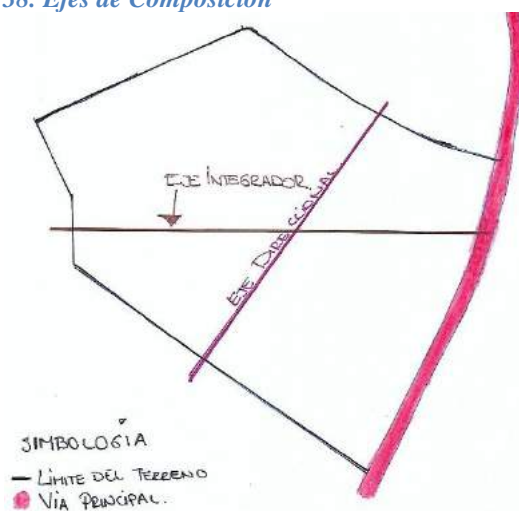 38. Ejes de Composición
EJE INTEGRADOR
EJE DIRECCIONAL
SIMBOLOGÍA
LÍMITE DEL TERRENO
VÍA PRINCIPAL.